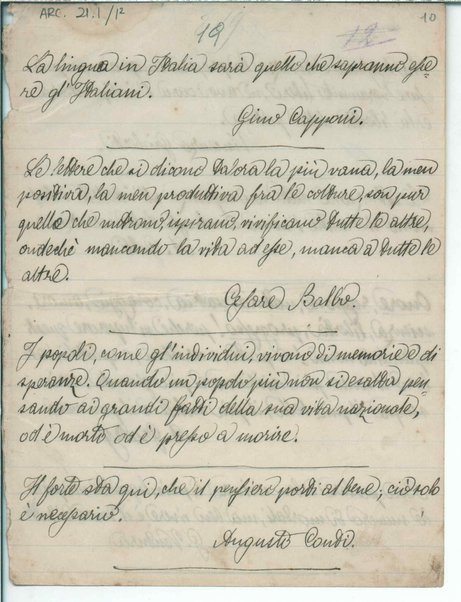 ARC. 21.1/12
19
12
10
La lingua in Italia sarà quello che sapranno esse-
re gl'Italiani.
Gino Capponi.
Le lettere che si dicono talora la più vana, la men
positiva, la men produttiva fra le colture, son pur
quelle che nutrono, ispirano, vivificano tutte le altre,
ondechè mancando la vita ad esse, manca a tutte le
altre.
Cesare Balbo.
I popoli, come gl'individui, vivono di memorie e di
speranze. Quando un popolo più non si esalta pen-
sando ai grandi fatti della sua vita nazionale,
od è morto od è presso a morire.
Il forte sta qui, che il pensiero porti al bene; ciò solo
è necessario.
Augusto Conti.